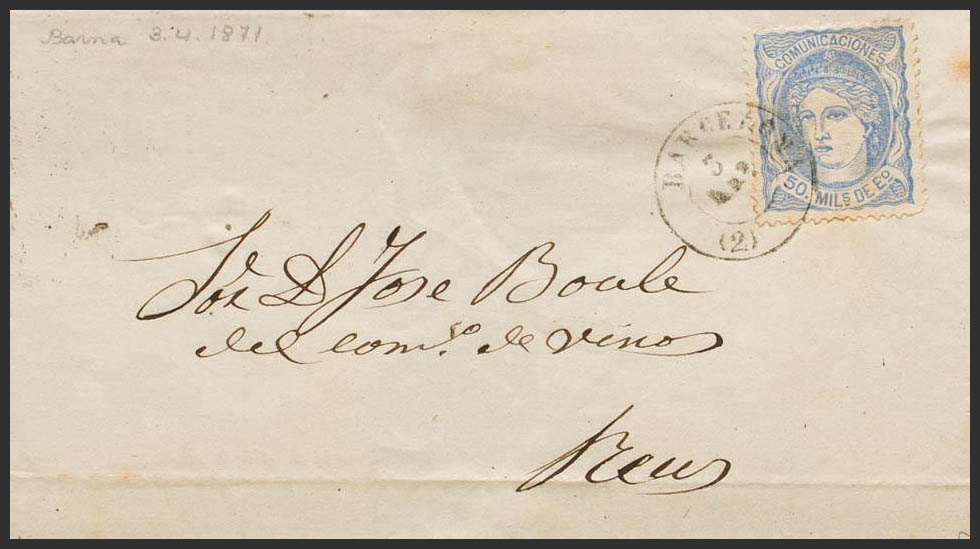 Barna 3.4.1871
COMUNICACIONES
50. MILS DE Eº
BARCE
(2)
Sor D José Boule
del comº. de vinos
Reus